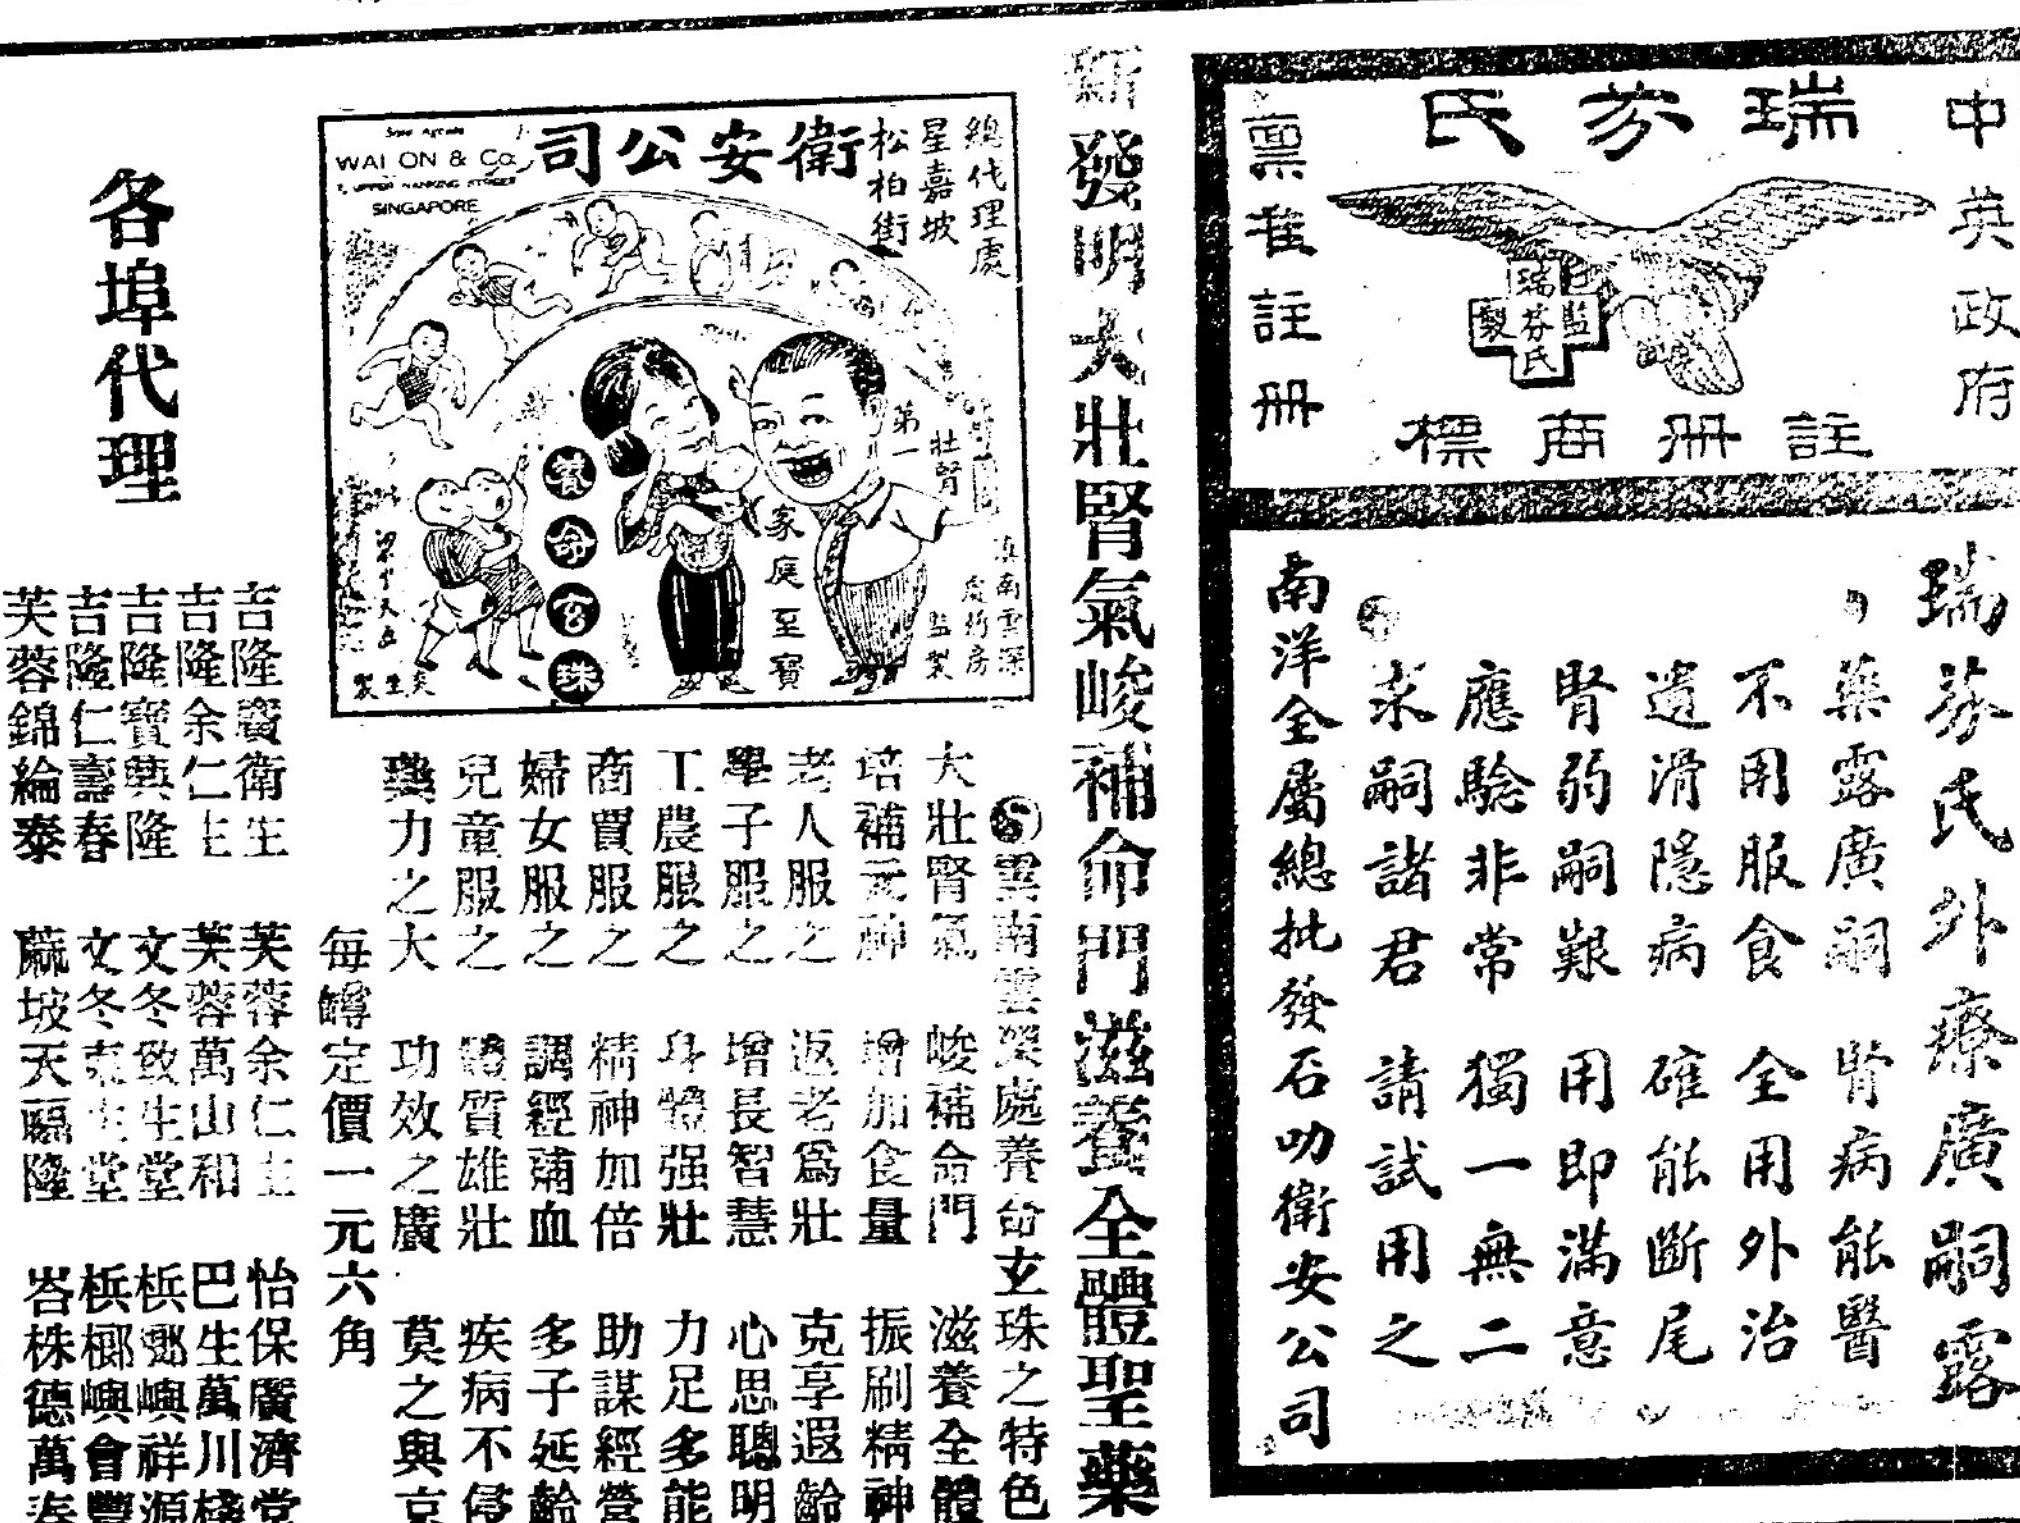 中英政府
稟准註冊
瑞芬氏
瑞芬氏監製
註冊商標
瑞芬氏外療廣嗣露
藥露廣嗣 腎病能醫
不用服食 全用外治
遺滑隱病 確能斷尾
腎弱嗣艱 用即滿意
應驗非常 獨一無二
求嗣諸君 請試用之
南洋全屬總批發石叻衛安公司
新發明大壯腎氣峻補命門滋養全體聖藥
總代理處
星嘉坡
松柏街
衛安公司
Sole Agents
WAI ON & Co.
UPPER NANKING STREET
SINGAPORE
第一
壯腎
家庭至寶
養命玄珠
滇南雲深
處藥房
監製
雲南雲深處養命玄珠之特色
大壯腎氣 峻補命門 滋養全體
培補元神 增加食量 振刷精神
老人服之 返老為壯 克享遐齡
學子服之 增長智慧 心思聰明
工農服之 身體强壯 力足多能
商買服之 精神加倍 助謀經營
婦女服之 調經補血 多子延齡
兒童服之 體質雄壯 疾病不侵
藥力之大 功效之廣 莫之與京
每罇定價一元六角
各埠代理
吉隆廣衛生 芙蓉余仁生 怡保廣濟堂
吉隆余仁生 芙蓉萬山和 巴生萬川棧
吉隆寶興隆 文冬致生堂 梹榔嶼祥源
吉隆仁壽春 文冬 堂 梹榔嶼會豐
芙蓉錦綸泰 蔴坡天福隆 峇株德萬春